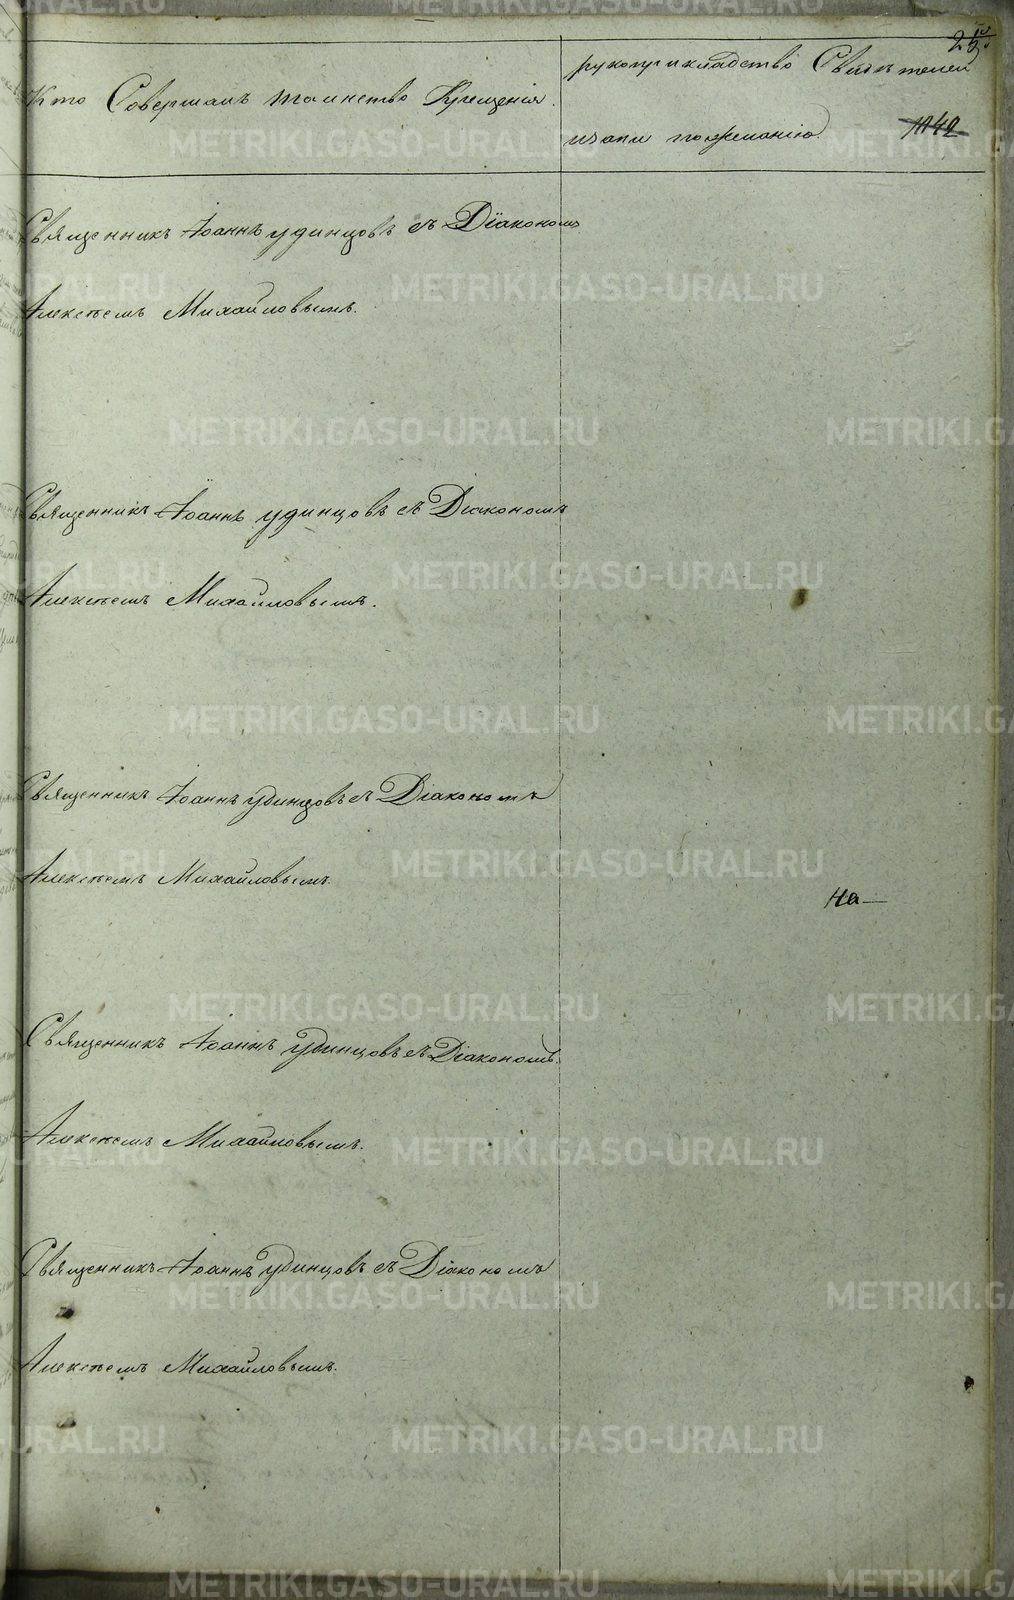 Кто Совершалъ таинство Крещенія.
рукоприкладство Свидѣтелей
по желанію.
Священникъ Іоаннъ Удинцовъ съ Діакономъ
Алексѣемъ Михайловымъ.
Священникъ Іоаннъ Удинцовъ съ Діакономъ
Алексѣемъ Михайловымъ.
Священникъ Іоаннъ Удинцовъ съ Діакономъ
Алексѣемъ Михайловымъ.
на—
Священникъ Іоаннъ Удинцовъ съ Діакономъ.
Алексѣемъ Михайловымъ.
Священникъ Іоаннъ Удинцовъ съ Діакономъ
Алексѣемъ Михайловымъ.
METRIKI.GASO-URAL.RU